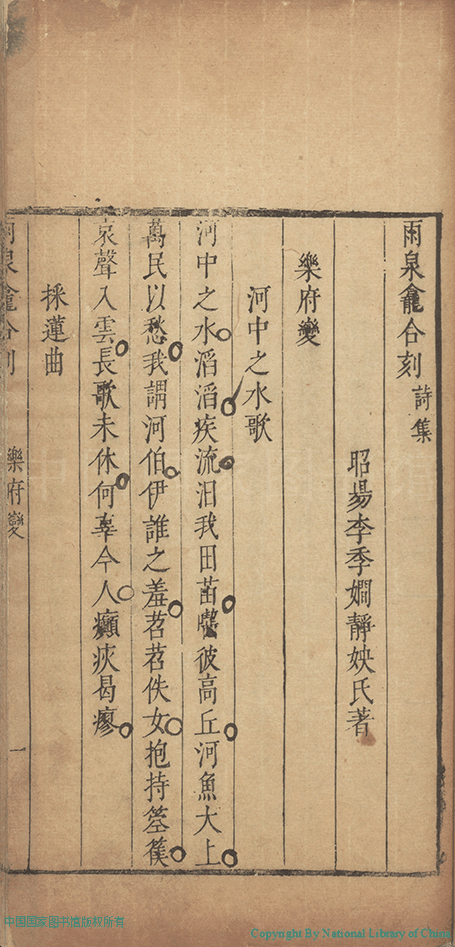 雨泉龕合刻 詩集
昭揚李季嫺靜姎氏著
樂府變
河中之水歌
河中之水滔滔疾流汨我田苗彼高丘河魚大上
萬民以愁我謂河伯伊誰之羞苕苕佚女抱持箜篌
哀聲入雲長歌未休何辜今人癲疢曷瘳
採蓮曲
雨泉龕合刻 樂府變 一
中国国家图书馆版权所有
Copyright By National Library of China